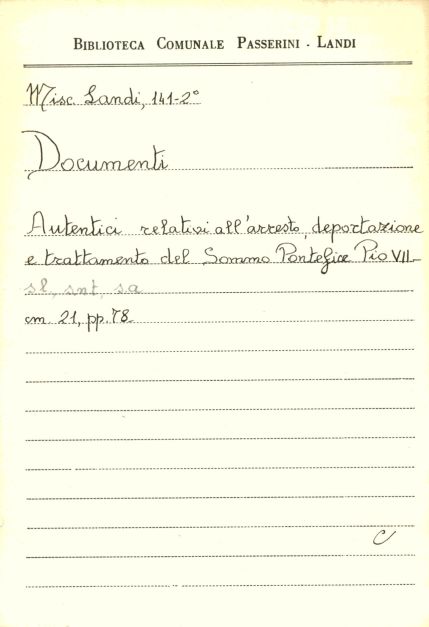 BIBLIOTECA COMUNALE PASSERINI - LANDI
Misc. Landi, 141-2°
Documenti
Autentici relativi all'arresto, deportazione
e trattamento del Sommo Pontefice Pio VII-
sl, snt, sa
cm. 21, pp. 78
C